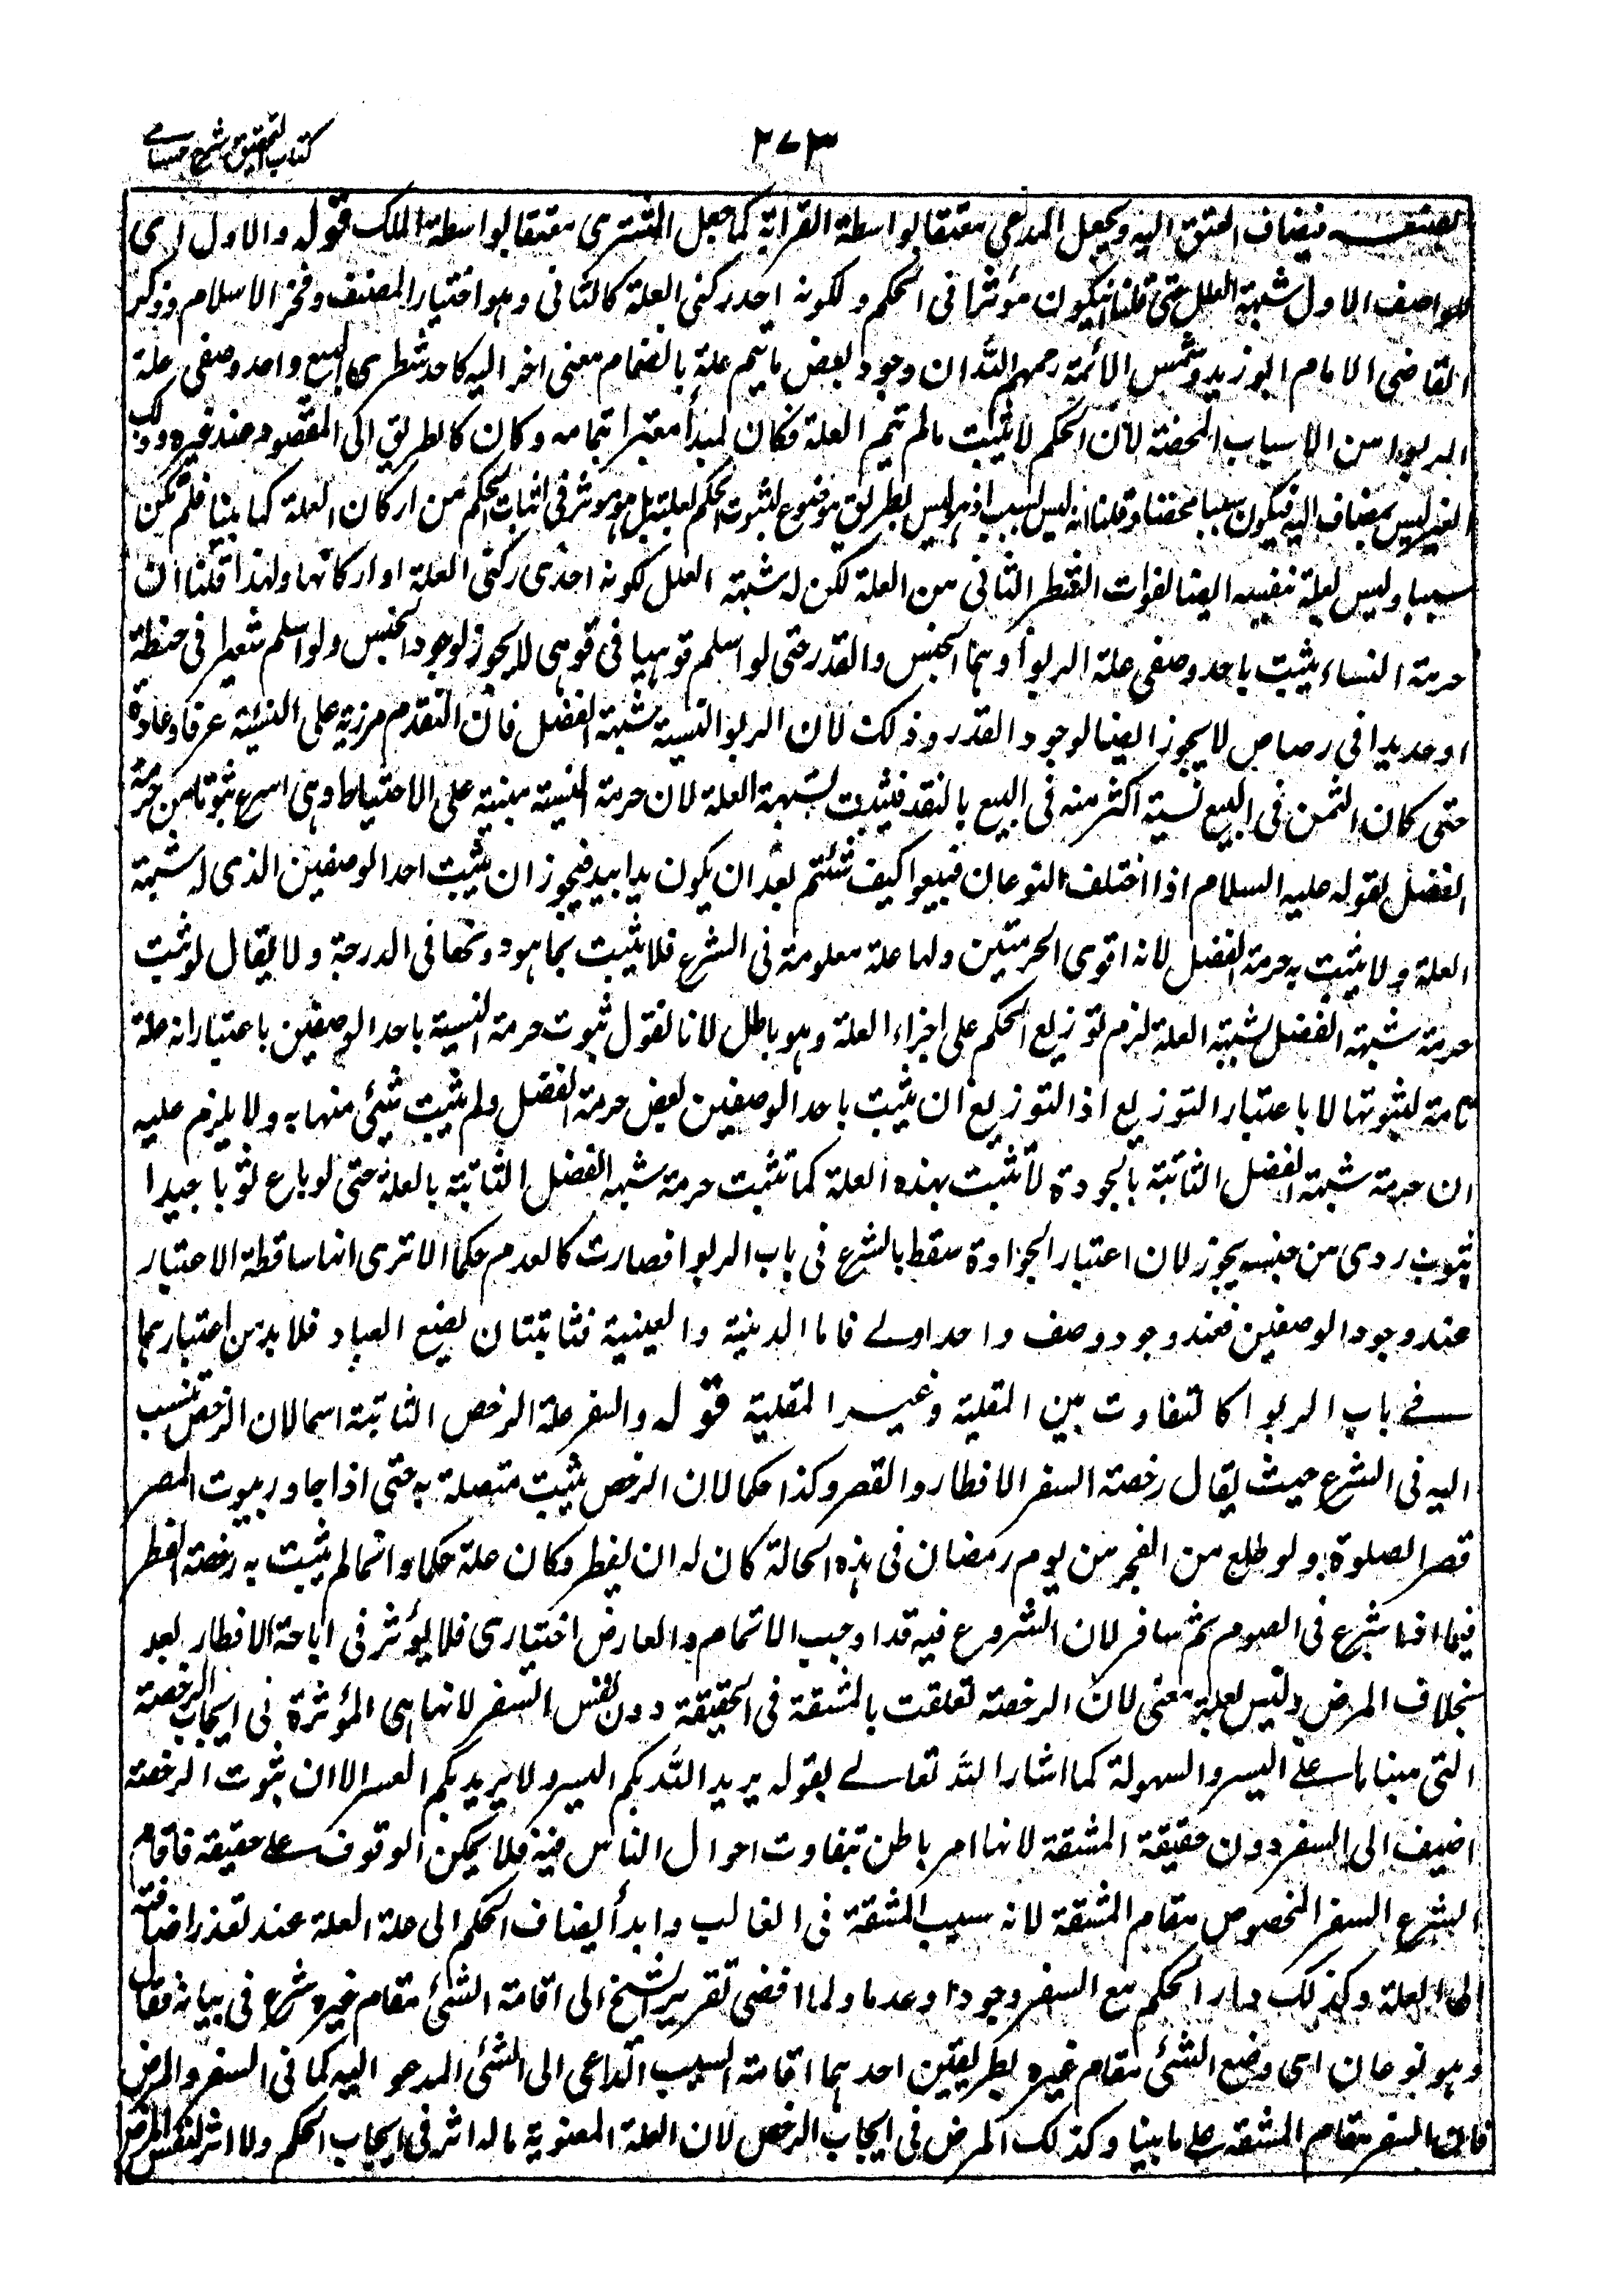 كتاب التحقيق شرح حسامى
٣٧٣
لصنعه فيضاف العتق اليه ويجعل المدعى معتقا بواسطة القرابة كما جعل المشترى معتقا بواسطة الملك قوله والاول اى
للوصف الاول شبهة العلل حتى قلنا فيكون مؤثرا فى الحكم ولكونه احد ركنى العلة كالثانى وهو اختيار المصنف وفخر الاسلام وذكر
القاضى الامام ابو زيد وشمس الائمة رحمهم الله ان وجود بعض ما يتم علة بانضمام معنى اخر اليه كاحد شطرى البيع واحد وصفى علة
الربوا من الاسباب المحضة لان الحكم لا يثبت مالم تتم العلة فكان لمبدأ معتبرا بتمامه وكان كالطريق الى المقصود عند غيره وذلك
الغير ليس بمضاف اليه فيكون سببا محضا وقلنا انه ليس بسبب اذ هو ليس بطريق موضوع لثبوت الحكم لعلية بل هو مؤثر فى اثبات الحكم من اركان العلة كما بينا فلم يكن
سببا وليس لعلة نفسه ايضا لفوات الشطر الثانى من العلة لكن له شبهة العلل لكونه احدى ركنى العلة او اركانها ولهذا قلنا ان
حرمة النساء يثبت باحد وصفى علة الربوا وهما الجنس والقدر حتى لو اسلم قوهيا فى قوهى لا يجوز لوجود الجنس ولو اسلم شعيرا فى حنطة
او حديدا فى رصاص لا يجوز ايضا لوجود القدر وذلك لان الربوا النسية شبهة الفضل فان النقد مزية على النسئية عرفا وعادة
حتى كان الثمن فى البيع نسية اكثر منه فى البيع بالنقد فيثبت بشبهة العلة لان حرمة النسية مبنية على الاحتياط وهى اسرع ثبوتا من حرمة
الفضل لقوله عليه السلام اذا اختلف النوعان فبيعوا كيف شئتم بعد ان يكون يدا بيد فيجوز ان يثبت احد الوصفين الذى له شبهة
العلة ولا يثبت به حرمة الفضل لانه اقوى الحرمتين ولها علة معلومة فى الشرع فلا يثبت بما هو دونها فى الدرجة ولا يقال لو ثبت
حرمة شبهة الفضل بشبهة العلة لزم توزيع الحكم على اجزاء العلة وهو باطل لانا نقول ثبوت حرمة النسية باحد الوصفين باعتبار انه علة
تامة لثبوتها لا باعتبار التوزيع اذ التوزيع ان يثبت باحد الوصفين بعض حرمة الفضل ولم يثبت شيئى منها به ولا يلزم عليه
ان حرمة شبهة الفضل الثابتة بالجودة لا تثبت بهذه العلة كما تثبت حرمة شبه الفضل الثابتة بالعلة حتى لو باع ثوبا جيدا
بثوب ردى من جنسه يجوز لان اعتبار الجوداة سقط بالشرع فى باب الربوا فصارت كالعدم حكما الا ترى انها ساقطة الاعتبار
عند وجود الوصفين فعند وجود وصف واحد اولے فاما الدينية والعينية فثابتتان بصنع العباد فلا بد من اعتبارهما
فے باب الربوا كالتفاوت بين المقلية وغير المقلية قوله والسفر علة الرخص الثابتة اسما لان الرخص تنسب
اليه فى الشرع حيث يقال رخصة السفر الافطار والقصر وكذا حكما لان الرخص يثبت متصلة به حتى اذا جاوز بيوت المصر
قصر الصلوة ولو طلع من الفجر من يوم رمضان فى هذه الحالة كان له ان يفطر وكان علة حكما وانما لم يثبت به رخصة الفطر
فيما اذا شرع فى الصوم ثم سافر لان الشروع فيه قد اوجب الاتمام والعارض اختيارى فلا يؤثر فى اباحة الافطار بعد
بخلاف المرض وليس لعلة معنى لان الرخصة تعلقت بالمشقة فى الحقيقة دون نفس السفر لانها هى المؤثرة فى ايجاب الرخصة
التى مبناها علے اليسر والسهولة كما اشار الله تعالے بقوله يريد الله بكم اليسر ولا يريد بكم العسر الا ان ثبوت الرخصة
اضيف الى السفر دون حقيقة المشقة لانها امر باطن تتفاوت احوال الناس فيه فلا يمكن الوقوف علے حقيقة فاقام
الشرع السفر المخصوص مقام المشقة لانه سبب المشقة فى الغالب وابدأ يضاف الحكم الى علة العلة عند تعذر اضافته
الى العلة وكذلك دار الحكم مع السفر وجودا وعدما ولما افضى تقرير الشيخ الى اقامة الشئى مقام غيره شرع فى بيانه فقال
وهو نوعان اى وضع الشئى مقام غيره بطريقين احدهما اقامة السبب الداعى الى الشئى المدعو اليه كما فى السفر والمرض
فان السفر مقام المشقة علے ما بينا وكذلك المرض فى ايجاب الرخص لان العلة المعنوية ما له اثر فى ايجاب الحكم ولا اثر لنفس المرض